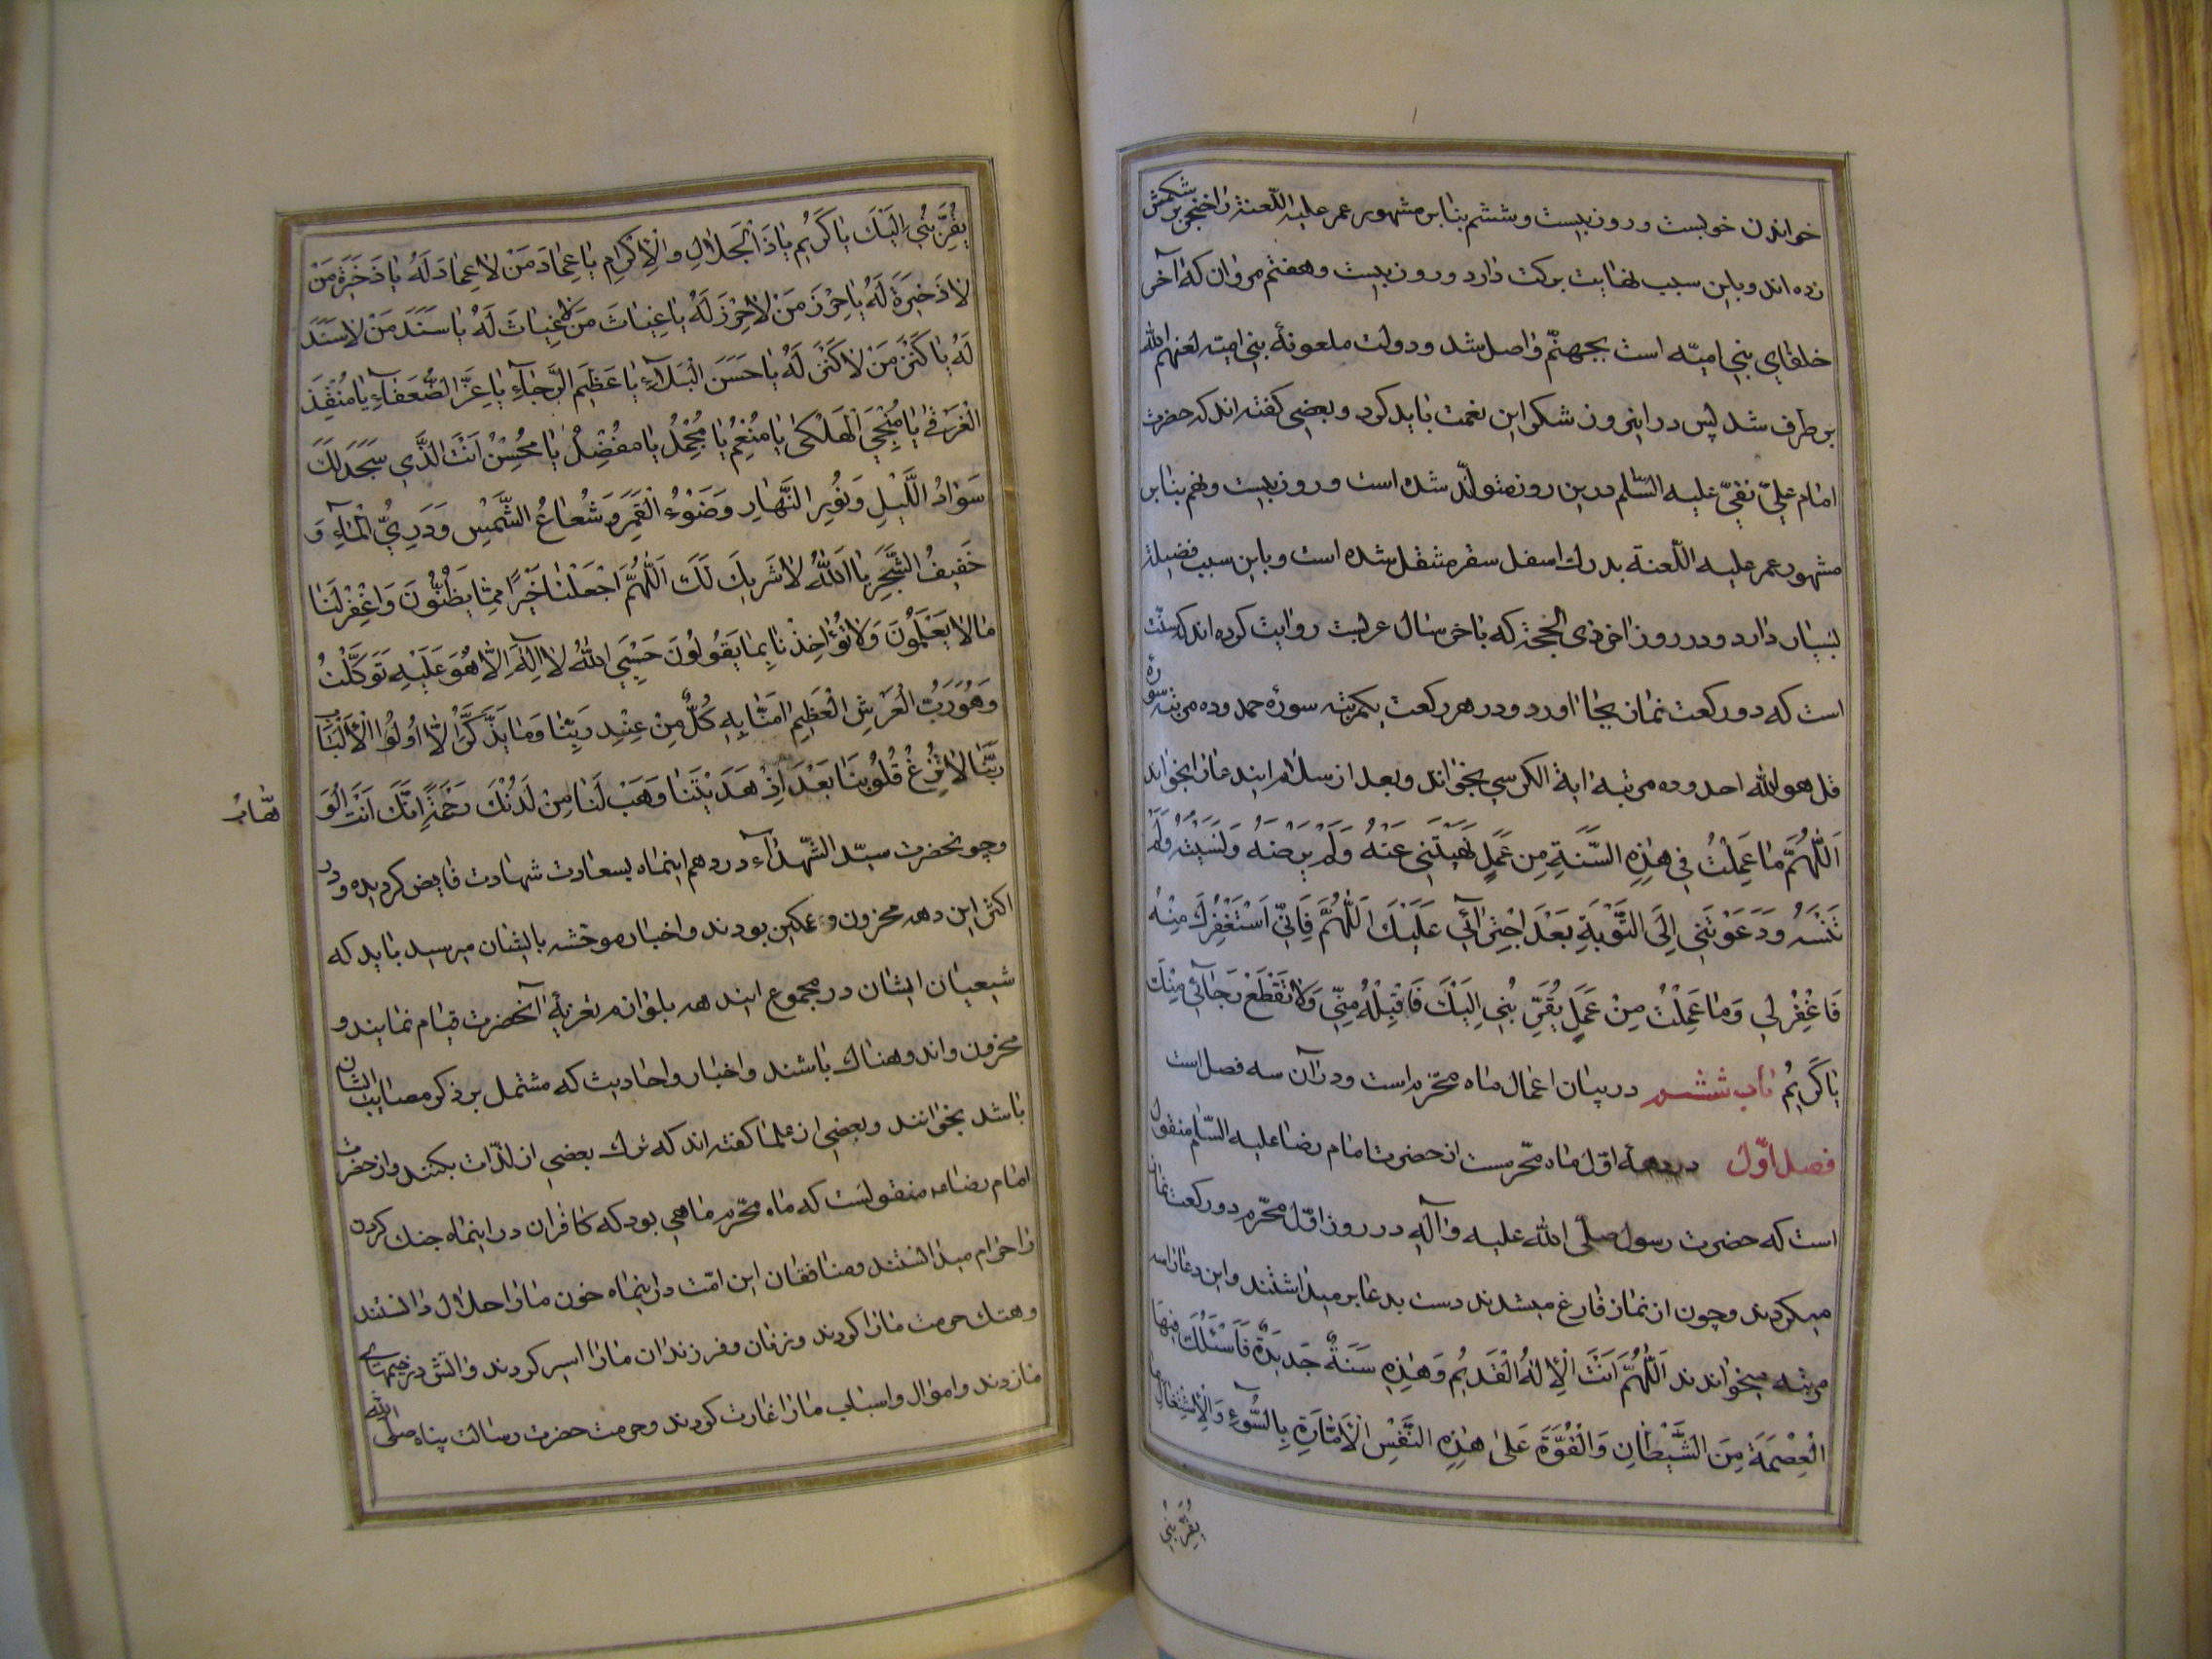 خواندن خوبست و روز بیست و ششم بنابر مشهور عمر علیه اللّعنة را خنجر بر شکمش
زده اند و باین سبب نهایت برکت دارد و روز بیست و هفتم مروان که آخر
خلفای بنی امیّه است بجهنّم واصل شد و دولت ملعونهٔ بنی امیّه لعنهم الله
بر طرف شد پس در اینروز شکر این نعمت باید کرد و بعضی گفته اند که حضرت
امام علیّ نقیّ علیه السّلم درین روز متولّد شده است و روز بیست و نهم بنابر
مشهور عمر علیه اللّعنة بدرك اسفل سقر منتقل شده است و باین سبب فضیلة
بسیار دارد و در روز اخر ذی الحجّة که باخر سال عربیست روایت کرده اند که سنّت
است که دو رکعت نماز بجا اورد و در هر رکعت یکمرتبه سورهٔ حمد و ده مرتبه سوره
قل هو الله احد و ده مرتبه ایة الکرسی بخواند و بعد از سلام ایندعا را بخواند
اَللّٰهُمَّ مٰا عَمِلْتُ فِی هٰذِهِ السَّنَةِ مِن عَمَلٍ نَهَیْتَنِی عَنْهُ وَلَمْ تَرْضَهُ وَنَسِیتُهُ وَلَمْ
تَنْسَهُ وَدَعَوْتَنِی اِلَی التَّوْبَةِ بَعْدَ اجْتِرٰائِی عَلَیْكَ اَللّٰهُمَّ فَاِنِّی اَسْتَغْفِرُكَ مِنْهُ
فَاغْفِرْ لِی وَمٰا عَمِلْتُ مِنْ عَمَلٍ یُقَرِّبُنِی اِلَیْكَ فَاقْبَلْهُ مِنِّی وَلاٰ تَقْطَعْ رَجٰائِی مِنْكَ
یٰا کَرِیمُ باب ششم در بیان اعمال ماه محرّم است و در آن سه فصل است
فصل اوّل در دههٔ اوّل ماه محّرمست از حضرت امام رضا علیه السّلم منقول
است که حضرت رسول صلّی الله علیه وآلهِ در روز اوّل محّرم دو رکعت نماز
میکردند و چون از نماز فارغ میشدند دست بدعا بر میداشتند و این دعا را سه
مرتبه میخواندند اَللّٰهُمَّ اَنْتَ الْاِلٰهُ الْقَدِیْمُ وَهٰذِهِ سَنَةٌ جَدِیدَةٌ فَاَسْئَلُكَ فِیهَا
الْعِصْمَةَ مِنَ الشَّیْطٰانِ وَالْقُوَّةَ عَلیٰ هٰذِهِ النَّفْسِ الْاَمّٰارَةِ بِالسُّوۤءِ وَالْاِشْتِغٰالَ بِمٰا
یُقَرِّبُنِی
یُقَرِّبُنِی اِلَیْكَ یٰا کَرِیْمُ یٰا ذَا الْجَلاٰلِ وَالْاِکْرٰامِ یٰا عِمٰادَ مَنْ لاٰ عِمٰادَ لَهُ یٰا ذَخِیرَةَ مَنْ
لاٰ ذَخِیرَةَ لَهُ یٰا حِرْزَ مَنْ لاٰ حِرْزَ لَهُ یٰا غِیٰاثَ مَنْ لاٰ غِیٰاثَ لَهُ یٰا سَنَدَ مَنْ لاٰ سَنَدَ
لَهُ یٰا کَنْزَ مَنْ لاٰ کَنْزَ لَهُ یٰا حَسَنَ الْبَلآءِ یٰا عَظِیْمَ الرَّجٰآءِ یٰا عِزَّ الضُّعَفٰآءِ یٰا مُنْقِذَ
الْغَرْقیٰ یٰا مُنْجِیَ الْهَلْکیٰ یٰا مُنْعِمُ یٰا مُجْمِلُ یٰا مُفْضِلُ یٰا مُحْسِنُ اَنْتَ الَّذِی سَجَدَ لَكَ
سَوٰادُ اللَّیْلِ وَنُورُ النَّهٰارِ وَضَوْءُ الْقَمَرِ وَشُعٰاعُ الشَّمْسِ وَدَوِیُّ الْمٰآءِ وَ
حَفِیفُ الشَّجَرِ یٰا اَللّٰهُ لاٰ شَرِیكَ لَكَ اَللّٰهُمَّ اجْعَلْنٰا خَیْرًا مِمّٰا یَظُنُّونَ وَاغْفِرْ لَنٰا
مٰا لاٰ یَعْلَمُونَ وَلاٰ تُؤٰاخِذْنٰا بِمٰا یَقُولُونَ حَسْبِیَ اللّٰهُ لاٰ اِلٰهَ اِلّاٰ هُوَ عَلَیْهِ تَوَکَّلْتُ
وَهُوَ رَبُّ الْعَرْشِ الْعَظِیمِ اٰمَنّٰا بِهِ کُلٌّ مِنْ عِنْدِ رَبِّنٰا وَمٰا یَذَّکَّرُ اِلّاٰ اُولُوا الْاَلْبٰابِ
رَبَّنٰا لاٰ تُزِغْ قُلُوبَنٰا بَعْدَ اِذْ هَدَیْتَنٰا وَهَبْ لَنٰا مِنْ لَدُنْكَ رَحْمَةً اِنَّكَ اَنْتَ الْوَ
هّٰابُ
و چونحضرت سیّد الشّهدآء در دهم اینماه بسعادت شهادت فایض کردیده و در
اکثر این دهه محزون و غمکین بودند و اخبار موحشه بایشان میرسید باید که
شیعیان ایشان در مجموع ایندهه بلوازم تعزیهٔ آنحضرت قیام نمایند و
محزون و اندوهناك باشند و اخبار و احادیث که مشتمل بر ذکر مصایب ایشان
باشد بخوانند و بعضی از علما کفته اند که ترك بعضی از لذّات بکنند و از حضرت
امام رضا عه منقولست که ماه محّرم ماهی بود که کافران در اینماه جنك کردن
را حرام میدانستند و منافقان این امّت در اینماه خون ما را حلال دانستند
و هتك حرمت ما را کردند و زنان و فرزندان ما را اسیر کردند و اتش در خیمهای
ما زدند و اموال و اسباب ما را غارت کردند و حرمت حضرت رسالت پناه صلّی الله